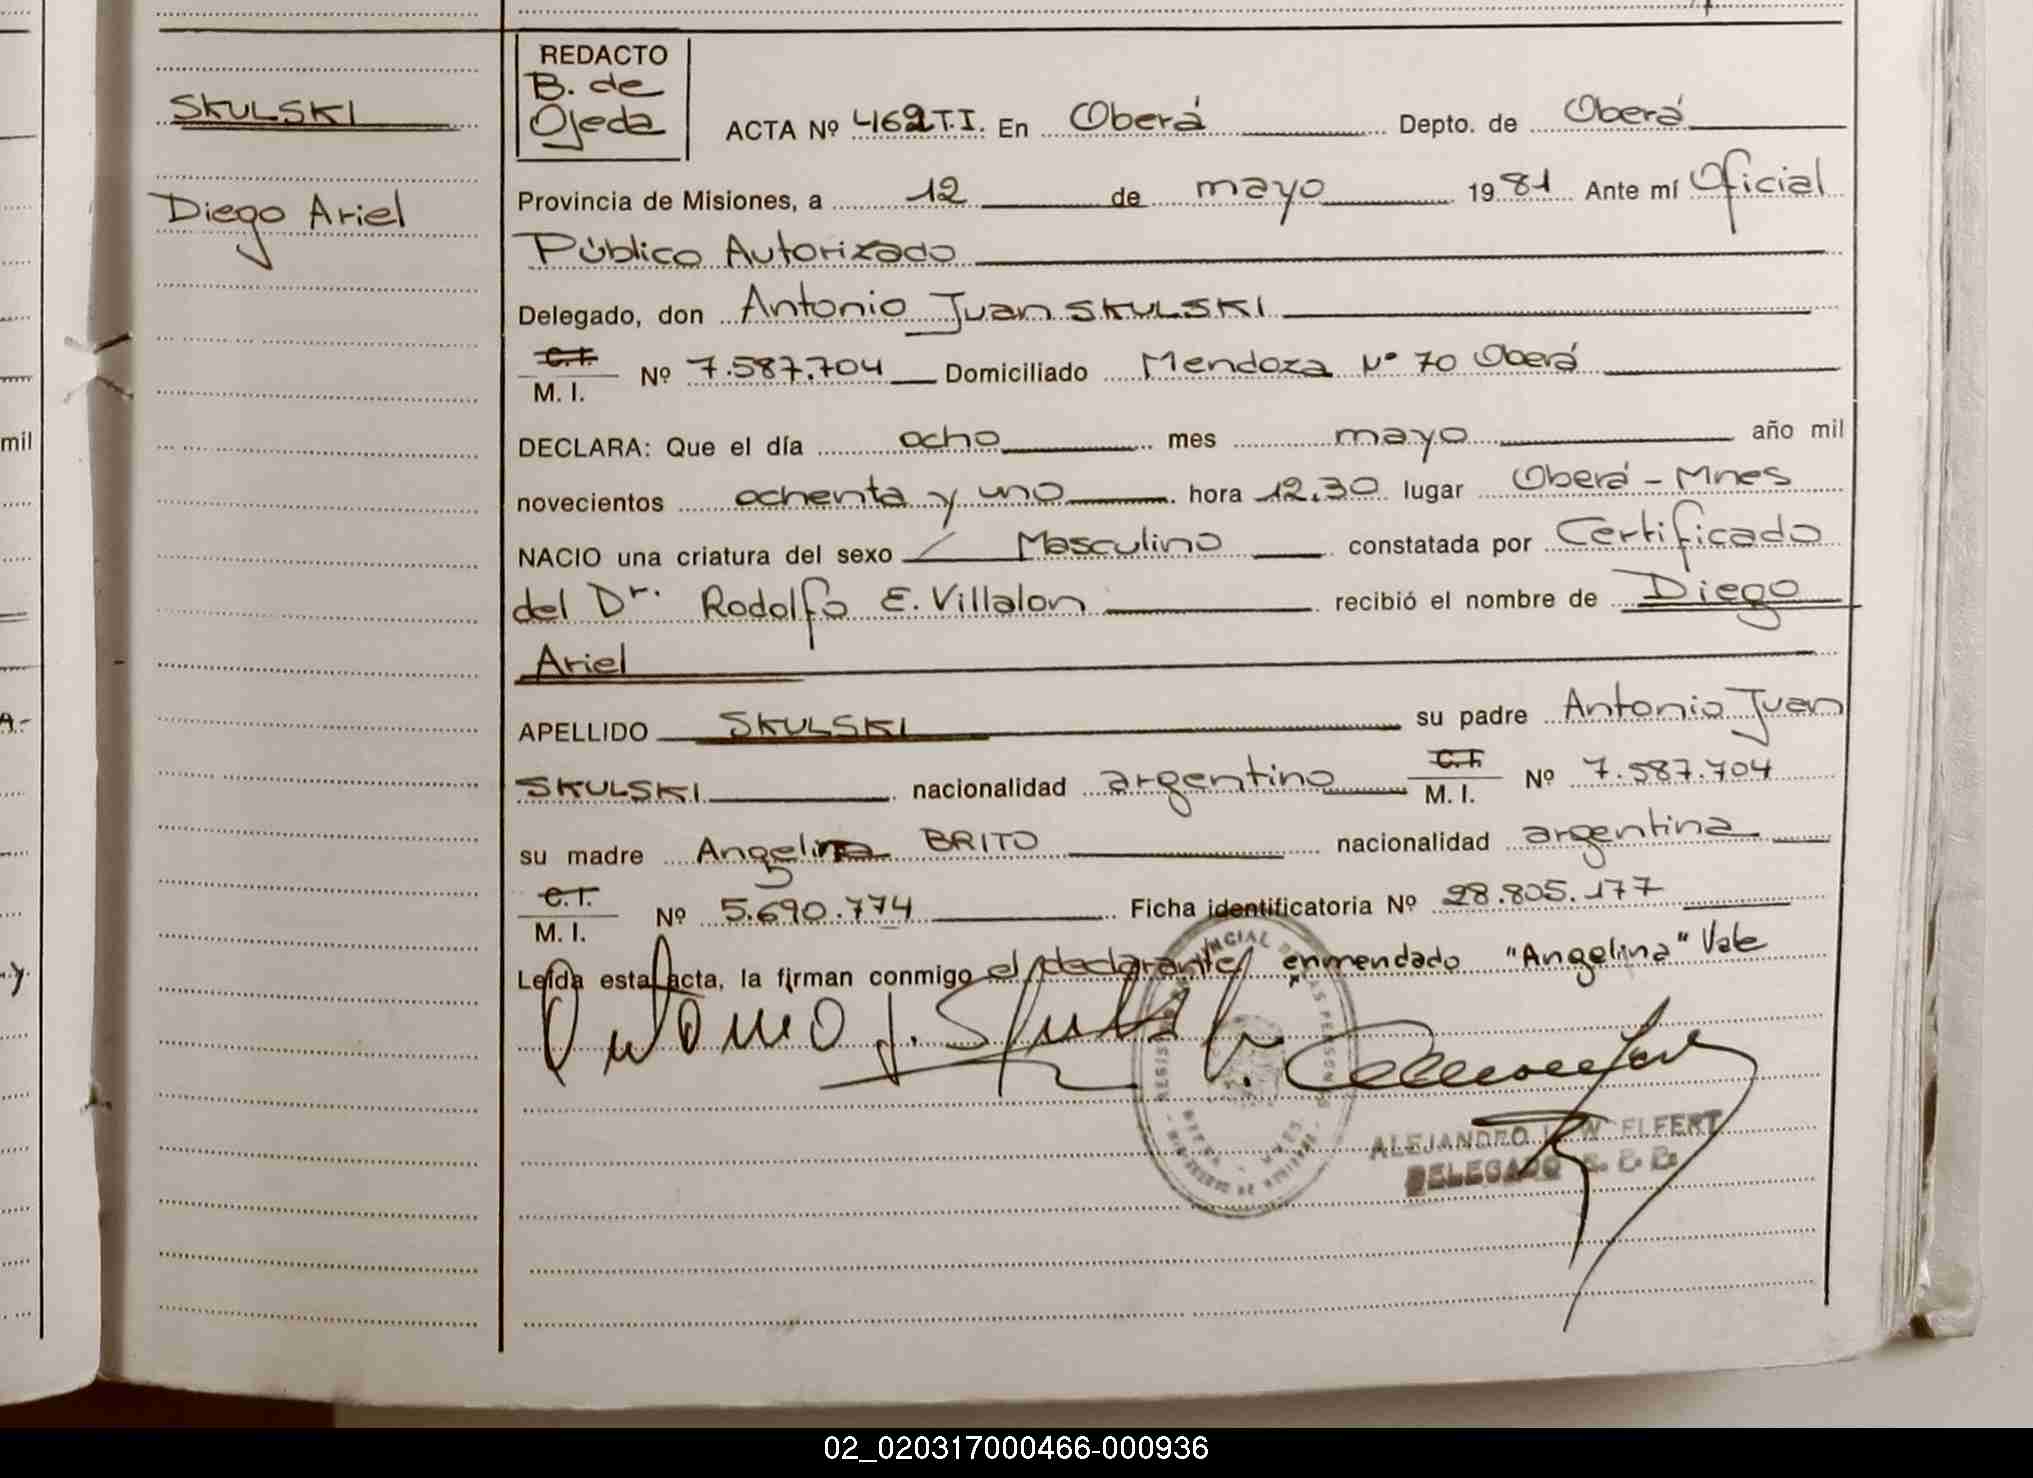 SKULSKI
Diego Ariel
REDACTO
B. de
Ojeda
ACTA Nº 462 T.I. En Oberá Depto. de Oberá
Provincia de Misiones, a 12 de mayo 1981 Ante mí Oficial
Público Autorizado
Delegado, don Antonio Juan SKULSKI
C.I.
M. I. Nº 7.587.704 Domiciliado Mendoza Nº 70 Oberá
DECLARA: Que el día ocho mes mayo año mil
novecientos ochenta y uno hora 12,30 lugar Oberá - Mnes
NACIO una criatura del sexo Masculino constatada por Certificado
del Dr. Rodolfo E. Villalon recibió el nombre de Diego
Ariel
APELLIDO SKULSKI su padre Antonio Juan
SKULSKI nacionalidad argentino C.I. M. I. Nº 7.587.704
su madre Angelina BRITO nacionalidad argentina
C.I.
M. I. Nº 5.690.774 Ficha identificatoria Nº 28.805.177
Leída esta acta, la firman conmigo el declarante, enmendado "Angelina" Vale
Antonio J. Skulski
ALEJANDRO W ELFERT
DELEGADO
mil
02_020317000466-000936